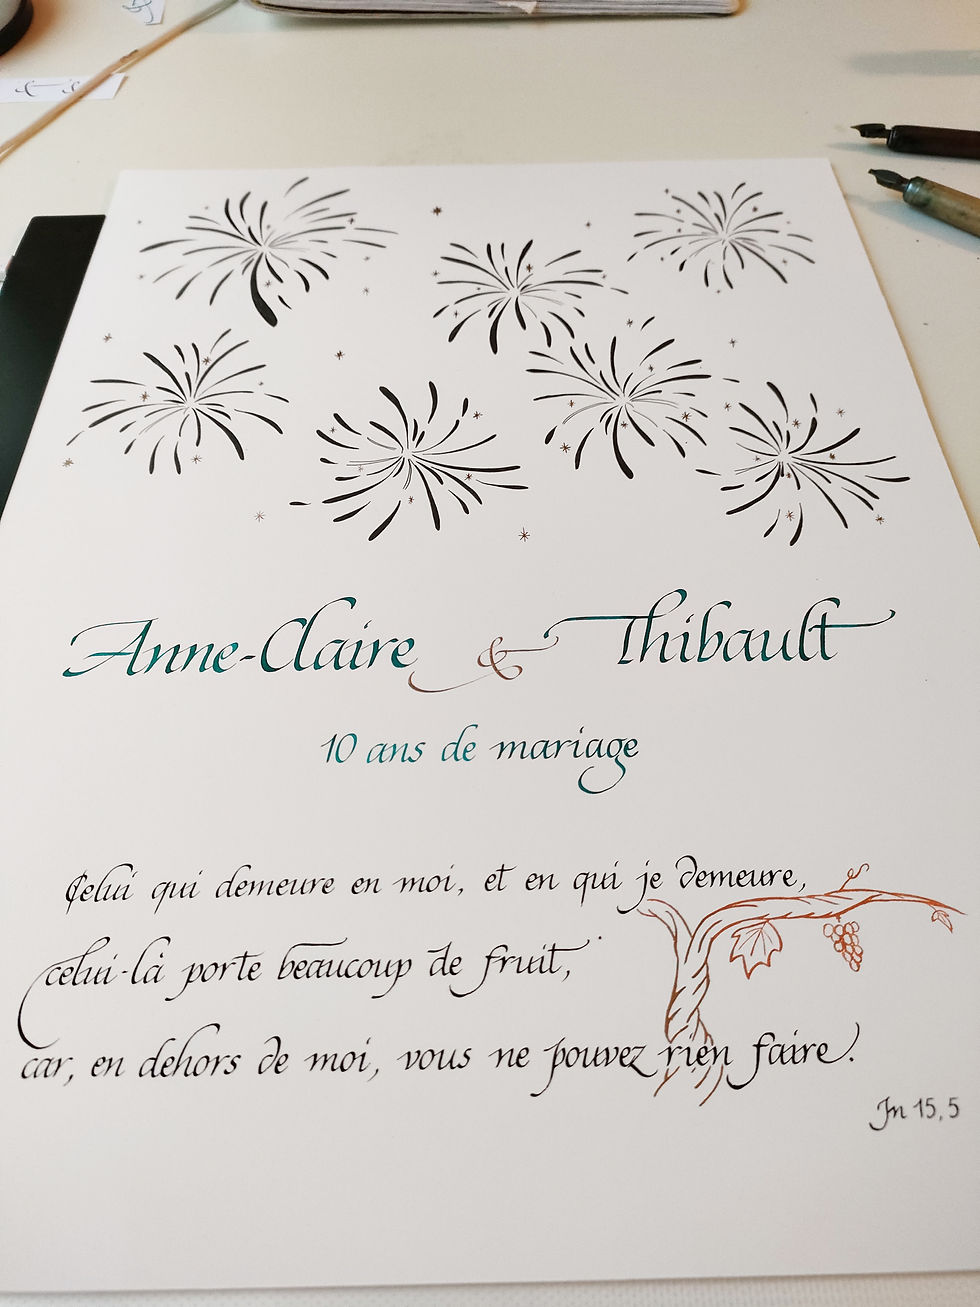 Anne-Claire & Thibault
10 ans de mariage
Celui qui demeure en moi, et en qui je demeure,
celui-là porte beaucoup de fruit,
car, en dehors de moi, vous ne pouvez rien faire.
Jn 15, 5